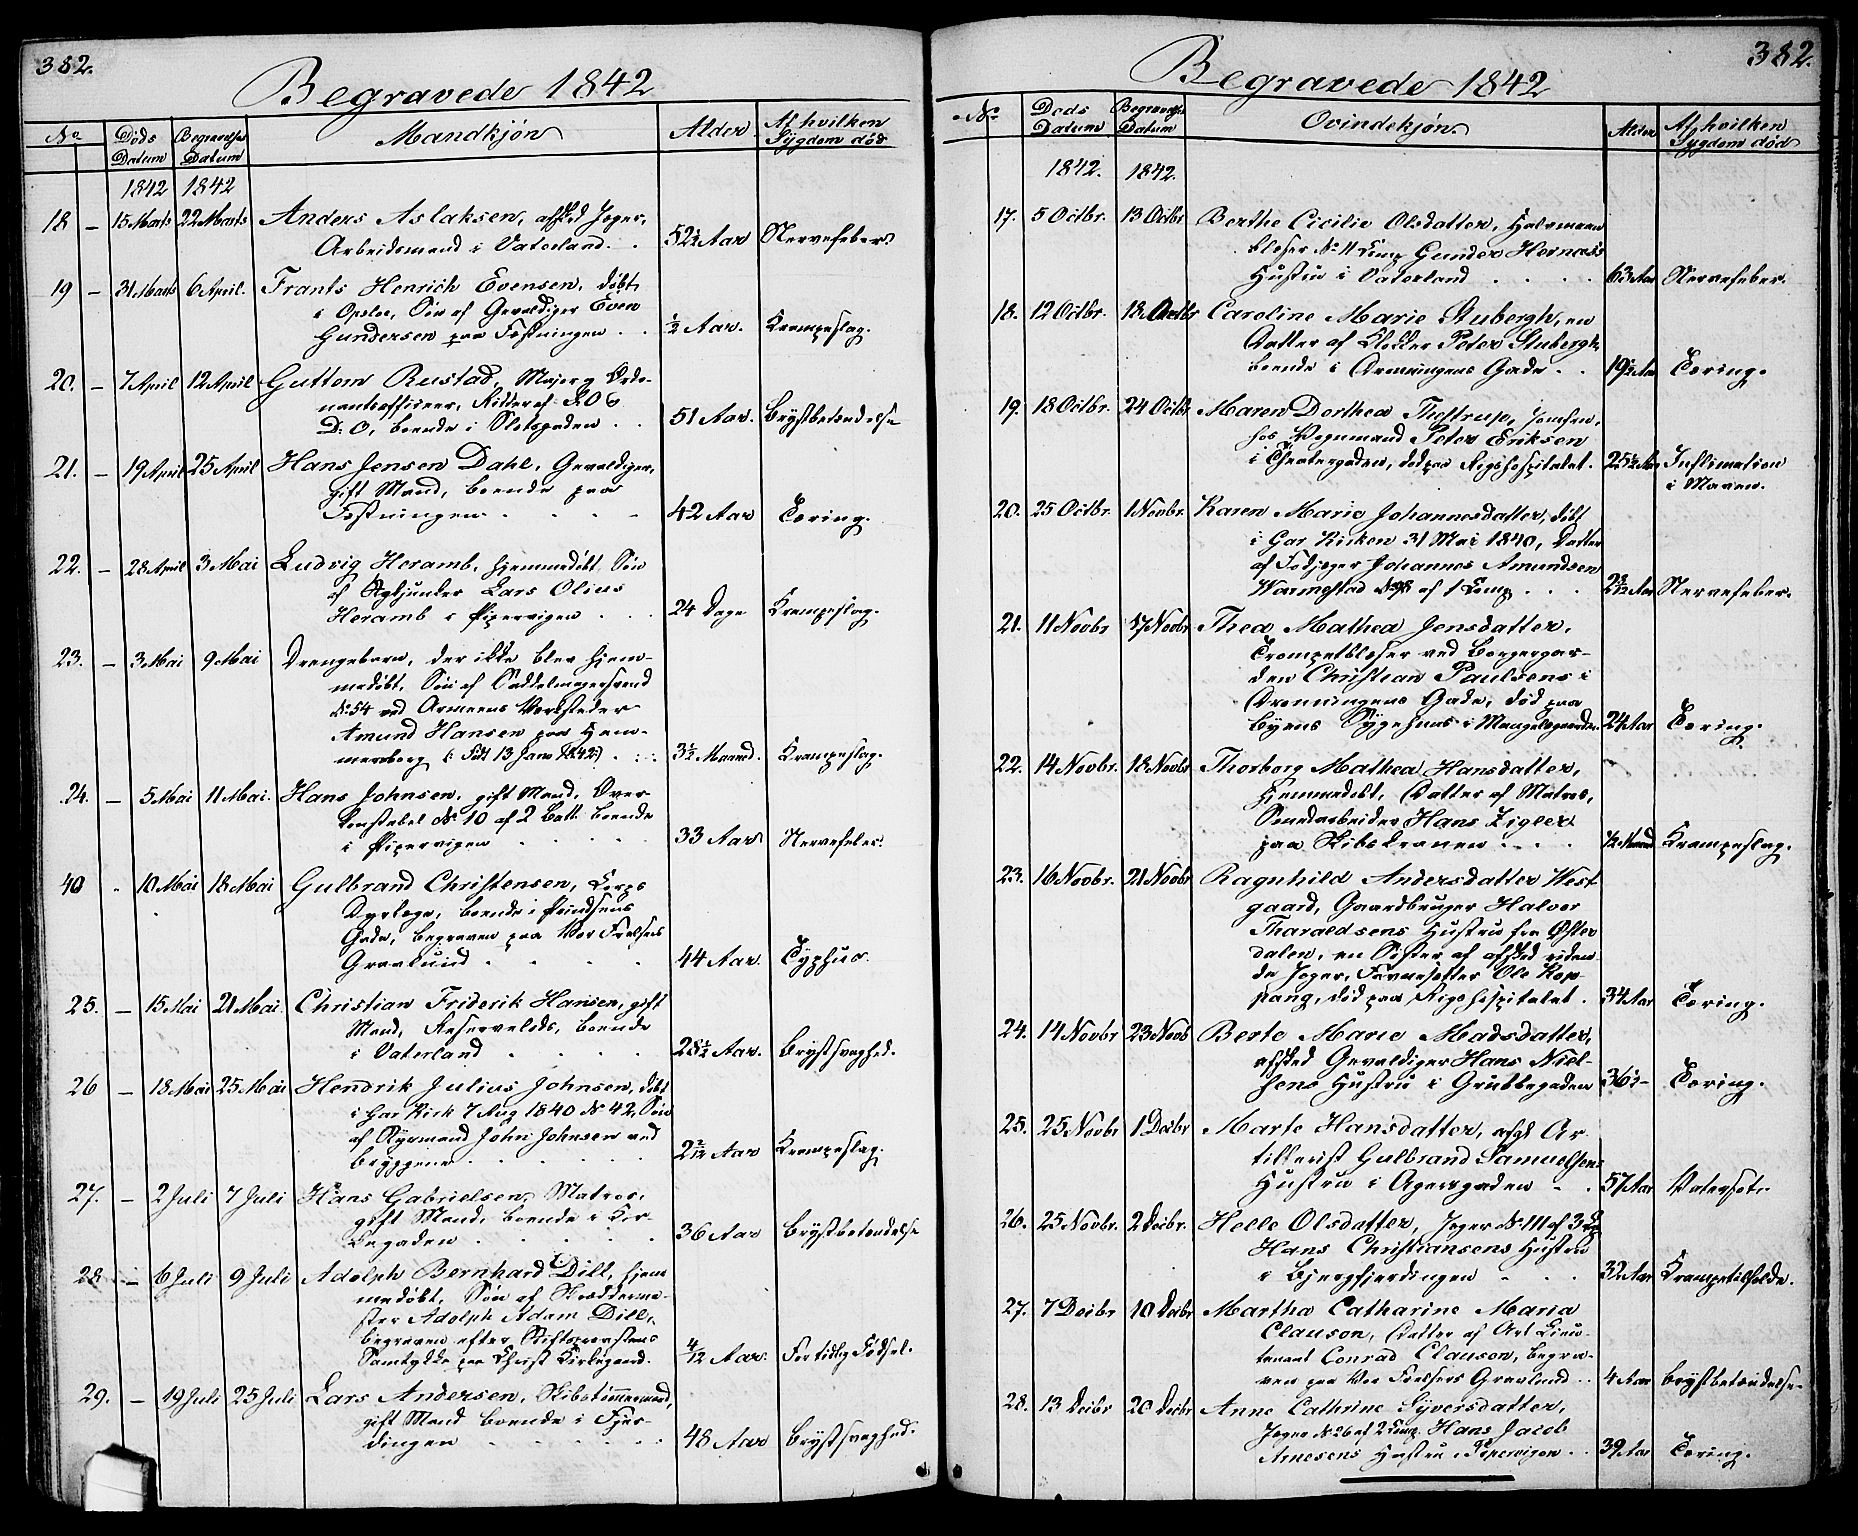 382.
Begravede 1842
No
Døds Datum
Begravelses Datum
Mandkjøn
Alder
Af hvilken Sygdom død
1842 1842
18 – 15 Marts 22 Marts Anders Aslaksen, afsked Jæger,
Arbeidsmand i Vaterland. . 52½ Aar Nervefeber.
19 – 31 Marts 6 April. Frants Henrich Evensen, døbt
i Opsloe, Søn af Gevaldiger Even
Gundersen paa Fæstningen . . ½ Aar. Krampeslag.
20. – 7 April 12 April Guttorm Rustad, Major, Orde-
nantsofficeer, Ridder af
D: O, boende i Slotsgaden . . 51 Aar. Brystbetændelse
21. – 19 April 25 April Hans Jensen Dahl, Gevaldiger,
gift Mand, boende paa
Fæstningen . . . 42 Aar Tæring.
22. – 28 April 3 Mai Ludvig Heramb, hjemmedøbt, Søn
af Lars Olius
Heramb i Pipervigen . . . 24 Dage Krampeslag.
23. – 3 Mai 9 Mai Drengebarn, der ikke blev hjem-
medøbt, Søn af Saddelmagersvend
No 54 ved Armeens Værksteder
Amund Hansen paa Ham-
mersborg (: Født 13 Janr 1842:) . 3½ Maaned. Krampeslag.
24. – 5 Mai 11 Mai. Hans Johnsen, gift Mand, Over-
konstabel No 10 af 2 Batt: boende
i Pipervigen . . . . 33 Aar Nervefeber.
40 . 10 Mai 18 Mai Gulbrand Christensen, Corps
Dyrlæge, boende i Prindsens
Gade, begraven paa Vor Frelsers
Gravlund . . . . 44 Aar. Typhus.
25. – 15 Mai 21 Mai. Christian Friderik Hansen, gift
Mand, boende
i Vaterland . . . . 28½ Aar. Brystsvaghed.
26 – 18 Mai 25 Mai Hendrik Julius Johnsen, døbt
i Gar Kirk 7 Aug 1840 No 42, Søn
af Styrmand John Johnsen ved
Bryggene . . . . . 2 Aar Krampeslag.
27. – 2 Juli 7 Juli Hans Gabrielsen, Matros,
gift Mand, boende i
. . . . 36 Aar Brystbetændelse
28 – 6 Juli 9 Juli Adolph Bernhard Dill, hjem-
medøbt, Søn af Skrædderme-
ster Adolph Adam Dill,
begraven efter Stiftsprovstens
Samtykke paa Christ Kirkegaard. 4/12 Aar. For tidlig Fødsel.
29. – 19 Juli 25 Juli Lars Andersen, Skibstømmermand,
gift Mand boende i Fjer-
dingen . . . . . 48 Aar Brystsvaghed.
382.
Begravede 1842
No
Døds Datum
Begravelses Datum
Qvindekjøn.
Alder
Af hvilken Sygdom død
1842. 1842.
17. 5 Octbr. 13 Octbr Berthe Cicilie Olsdatter, Halvmaan
blæser No 11 Comp Gunder Hornæss
Hustru i Vaterland . . . . 63 Aar Nervefeber.
18. 12 Octbr. 18 Octbr Caroline Marie Stubergh, en
Datter af Klokker Peter Stubergh
boende i Dronningens Gade . . 19½ Aar Tæring.
19. 18 Octbr. 24 Octbr. Maren Dorthea Thestrup, Jomfru,
hos Vognmand Peter Eriksen
i Theatergaden, død paa Rigshospitalet. 25½ Aar Inflimation
i Maven.
20. 25 Octbr. 1 Novbr. Karen Marie Johannesdatter, døbt
i Gar Kirken 31 Mai 1840, Datter
af Fodjæger Johannes Amundsen
Warmestad No 98 af 1 Comp . . . 2 Aar Nervefeber.
21. 11 Novbr 17 Novbr Thea Mathea Jensdatter,
Trompetblæser ved Borgergar-
den Christian Paulsens i
Dronningens Gade, død paa
Byens Sygehuus i Mangelsgaarden 24 Aar Tæring.
22. 14 Novbr. 18 Novbr Thorborg Mathea Hansdatter,
hjemmedøbt, Datter af Matros,
Hans Zigler
paa Skibskranen . . . . ½ Maaned Krampeslag.
23. 16 Novbr. 21 Novbr Ragnhild Andersdatter West-
gaard, Gaardbruger Halvor
Tharaldsens Hustru fra Øster-
dalen, en Søster af afsked riden-
de Jæger, Ole Kop-
pang, død paa Rigshospitalet . 34 Aar Tæring.
24. 14 Novbr 23 Novb Berte Marie Madsdatter,
afsked Gevaldiger Hans Niel-
sens Hustru i Grubbegaden 36½ – Tæring.
25. 25 Novbr 1 Decbr Marte Hansdatter, afsk Ar-
tillerist Gulbrand Samuelsens
Hustru i Agersgaden – . 57 Aar Vatersot.
26. 25 Novbr. 2 Decbr. Helle Olsdatter, Jæger No 111 af 3 Cp
Hans Christiansens Hustru
i Bjergfjerdingen . . . 32 Aar Krampetilfælde.
27. 7 Decbr 10 Decbr Martha Catharine Maria
Clauson, Datter af Art Lieu-
tenant Conrad Clauson, begra-
ven paa Vor Frelsers Gravlund . . 4 Aar Brystbetændelse
28. 13 Decbr 20 Decbr Anne Cathrine Syversdatter,
Jæger No 26 af 2 Comp. Hans Jacob
Arnesens Hustru i Pipervigen . . 39 Aar Tæring.